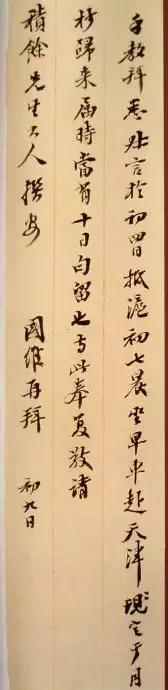 手教拜悉叔言於初四日抵滬初七晨坐早車赴天津現定于月
杪歸來屆時當有十日句留也专此奉复敬請
積餘先生大人撰安 國維再拜 初九日